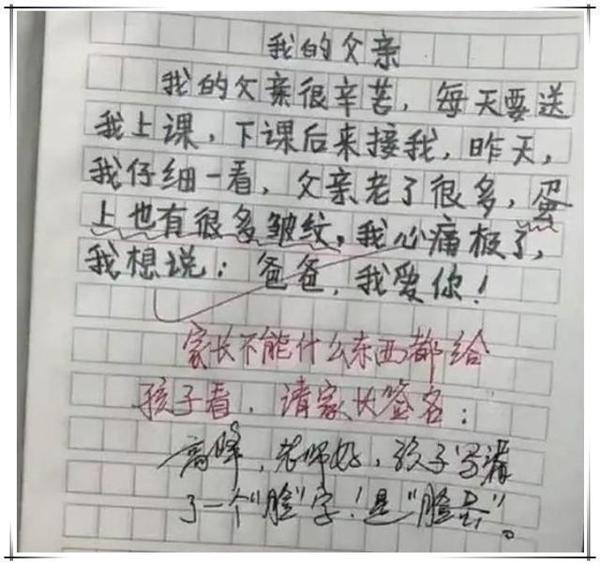 我的父亲
我的父亲很辛苦，每天要送
我上课，下课后来接我，昨天，
我仔细一看，父亲老了很多，蛋
上也有很多皱纹，我心痛极了，
我想说：爸爸，我爱你！
家长不能什么东西都给
孩子看，请家长签名：
高峰，老师好，孩子写漏
了一个"脸"字！是"脸蛋"。